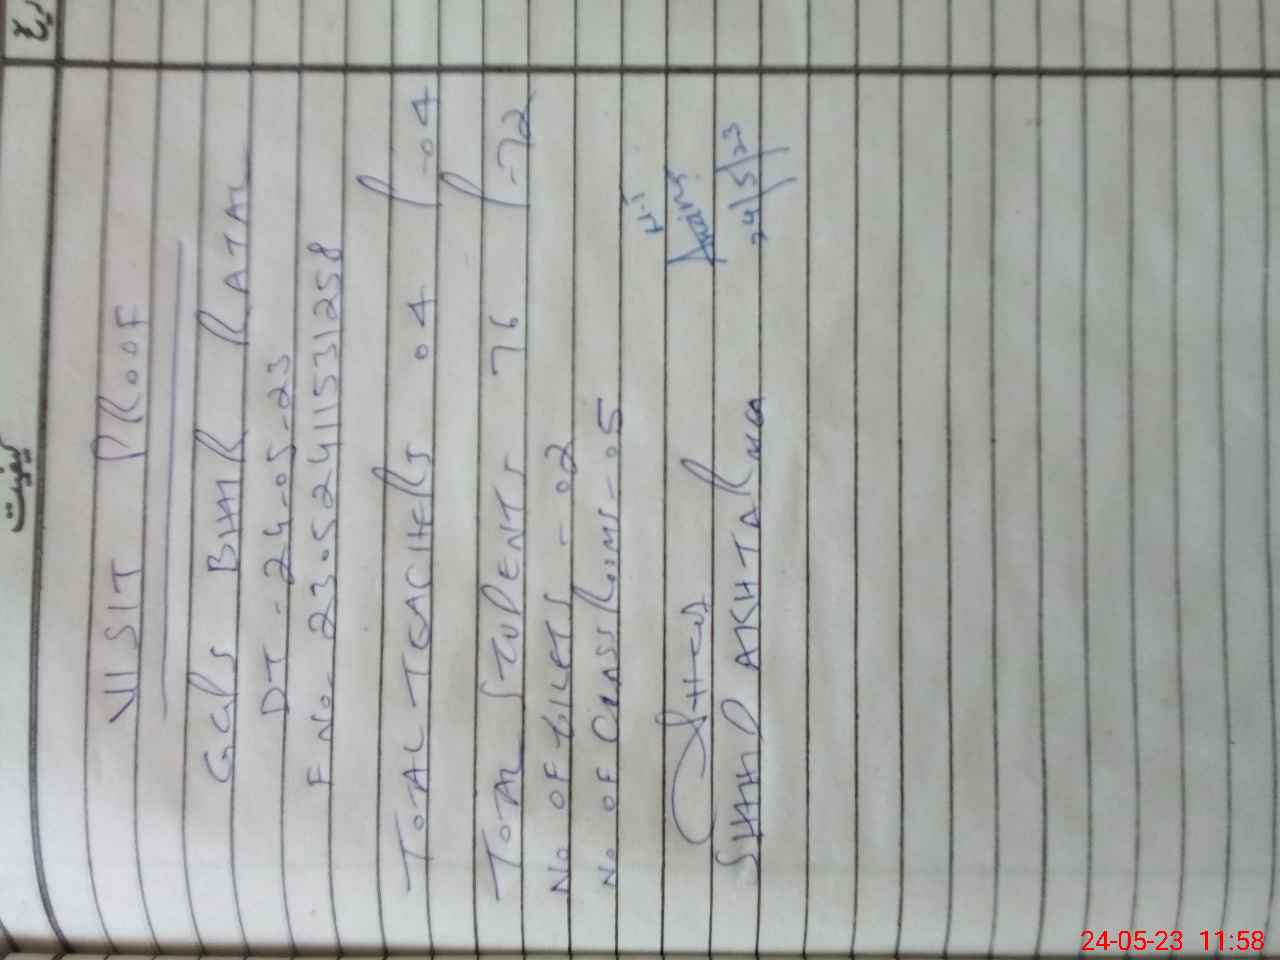 کیفیت
VISIT PROOF
GGPS BHIR RATAL
DT - 24-05-23
F No- 23052411531258
TOTAL TEACHERS 04 P-04
TOTAL STUDENTS 76 P-72
No OF TOILETS - 02
No OF CLASSROOMS - 05
SHAHID AKHTAR
24/5/23
24-05-23 11:58